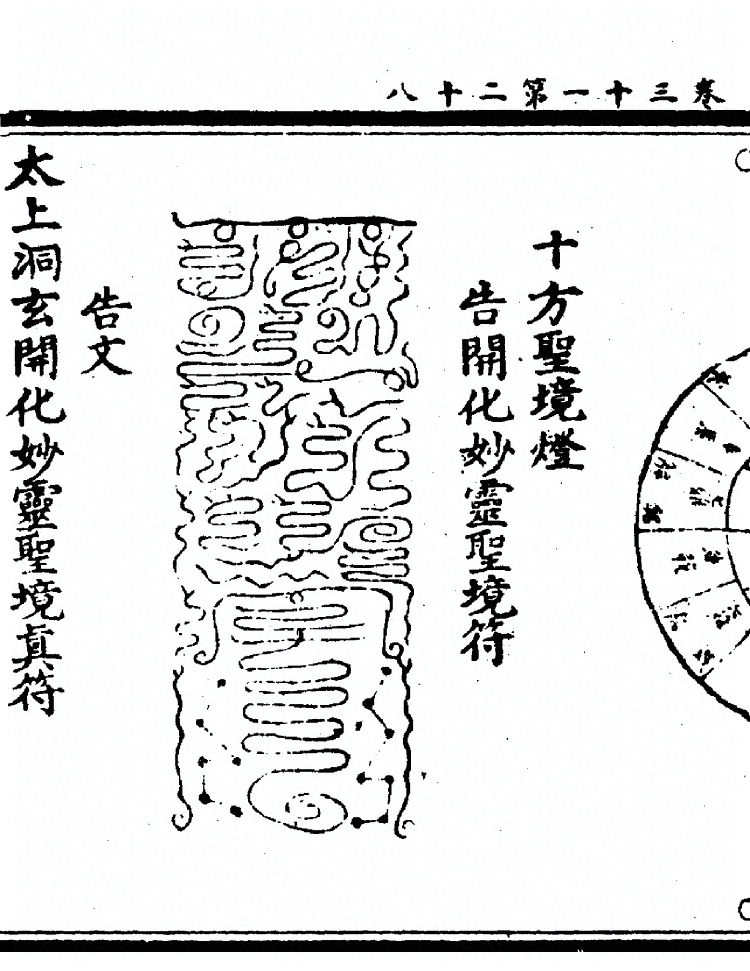 卷三十一第二十八
十方聖境燈
告開化妙靈聖境符
告文
太上洞玄開化妙靈聖境真符